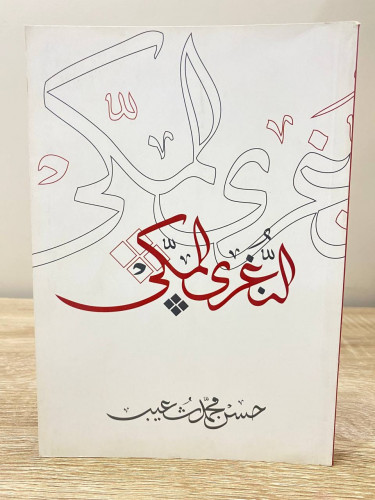 النُّغرى المكّى
حسن محمد شعيب